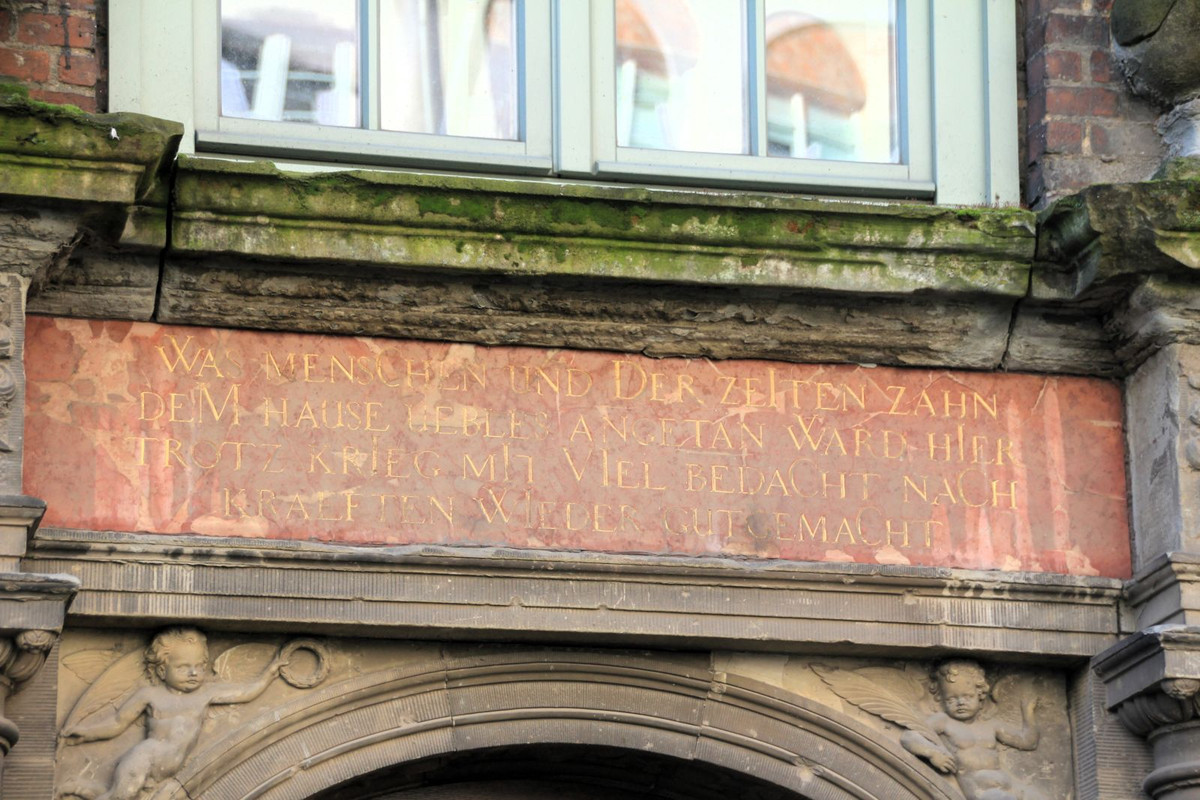 WAS MENSCHEN UND DER ZEITEN ZAHN
DEM HAUSE UEBLES ANGETAN WARD HIER
TROTZ KRIEG MIT VIEL BEDACHT NACH
KRAEFTEN WIEDER GUTGEMACHT